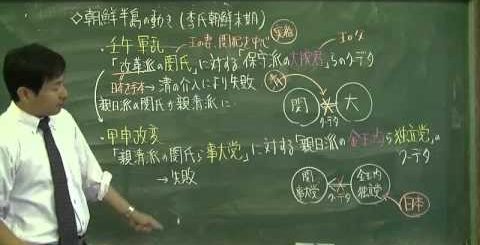 ◇朝鮮半島の動き(李氏朝鮮末期)
・壬午軍乱 → 王の妻、閔妃を中心
王の父
「改革派の閔氏」に対する「保守派の大院君」らのクーデタ
日本と手本 → 清の介入により失敗
親日派の閔氏が親清派に
閔 大
クーデタ
・甲申政変
「親清派の閔氏ら事大党」に対する「親日派の金玉均ら独立党」の
クーデタ
→ 失敗
閔 事大党 金玉均 独立党
クーデタ
日本